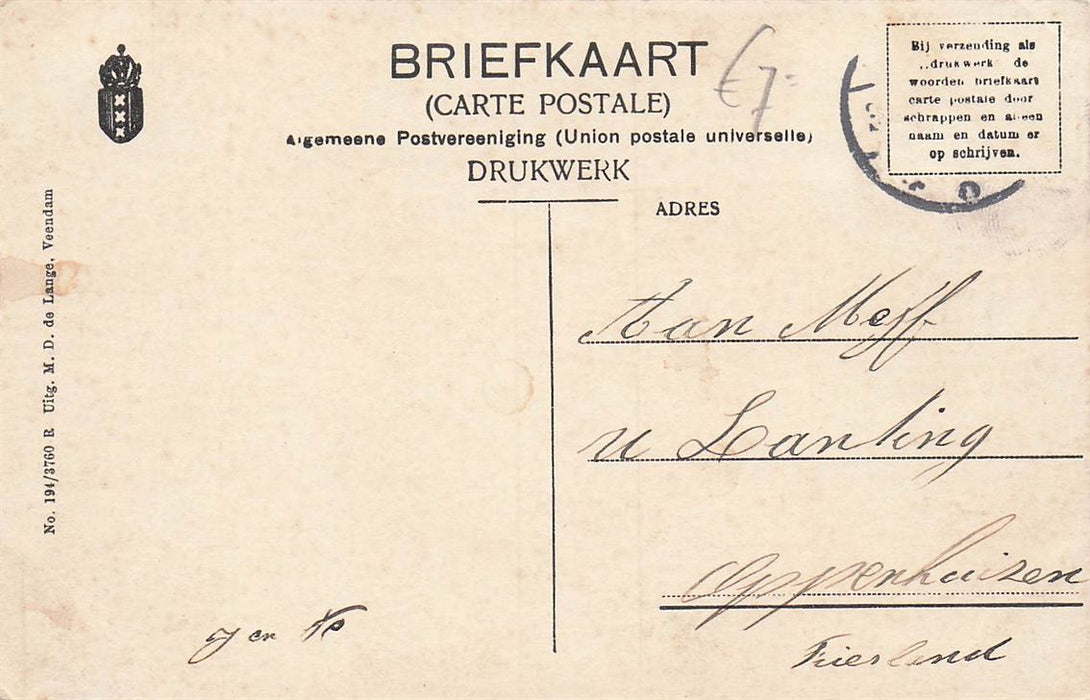 BRIEFKAART
(CARTE POSTALE)
Algemeene Postvereeniging (Union postale universelle)
DRUKWERK
€ 7-
Bij verzending als
„drukwerk" de
woorden briefkaart
carte postale door
schrappen en alleen
naam en datum er
op schrijven.
ADRES
No. 194/3760 R Uitg. M. D. de Lange, Veendam
Aan Mejf
u Lanting
Oppenhuizen
Friesland